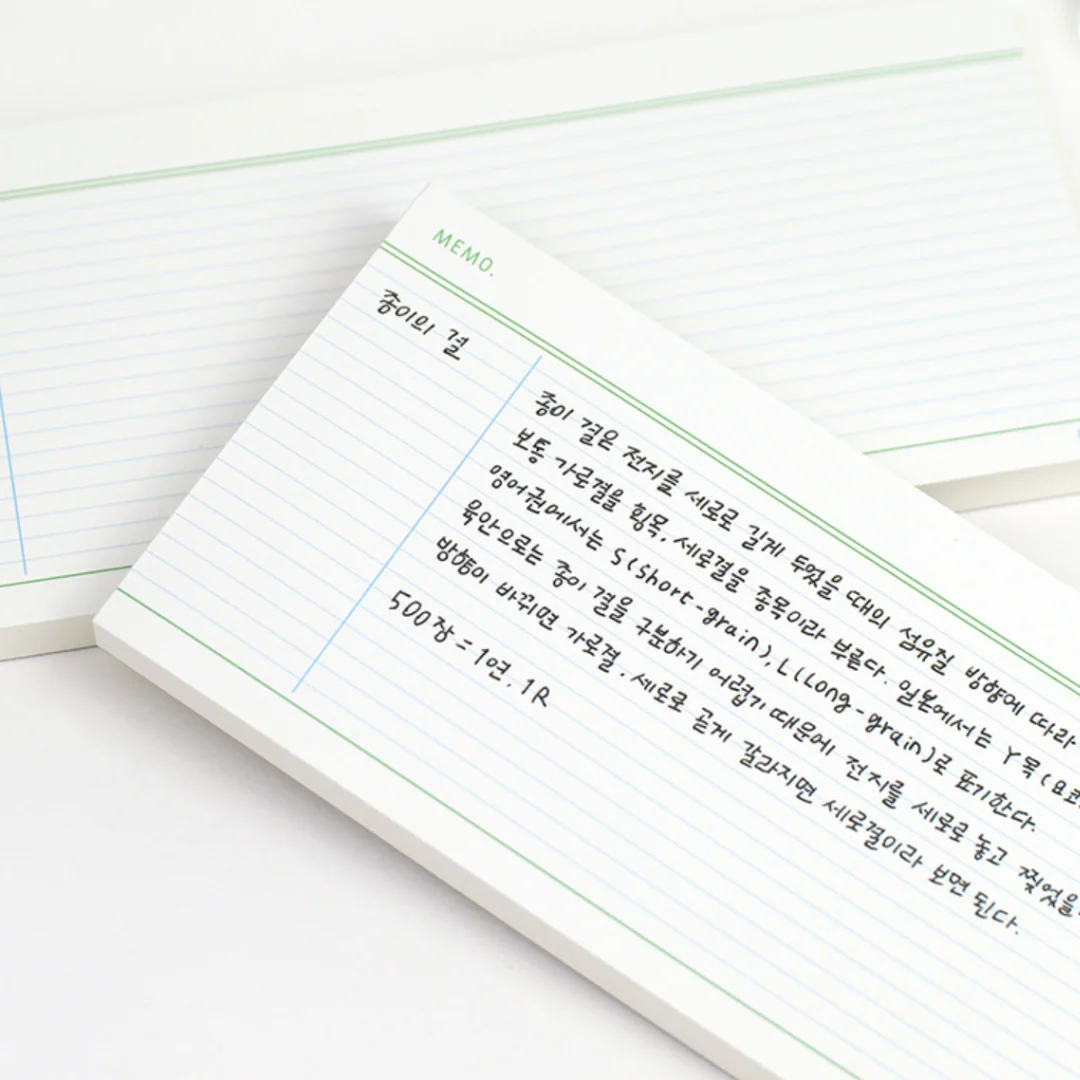 MEMO.
종이의 결
종이 결은 전지를 세로로 길게 두었을 때의 섬유질 방향에 따라
보통 가로결을 횡목, 세로결을 종목이라 부른다. 일본에서는 Y목(요코
영어권에서는 S(short-grain), L(Long-grain)로 표기한다.
육안으로는 종이 결을 구분하기 어렵기 때문에 전지를 세로로 놓고 찢었을
방향이 바뀌면 가로결, 세로로 곧게 갈라지면 세로결이라 보면 된다.
500장 = 1연, 1R